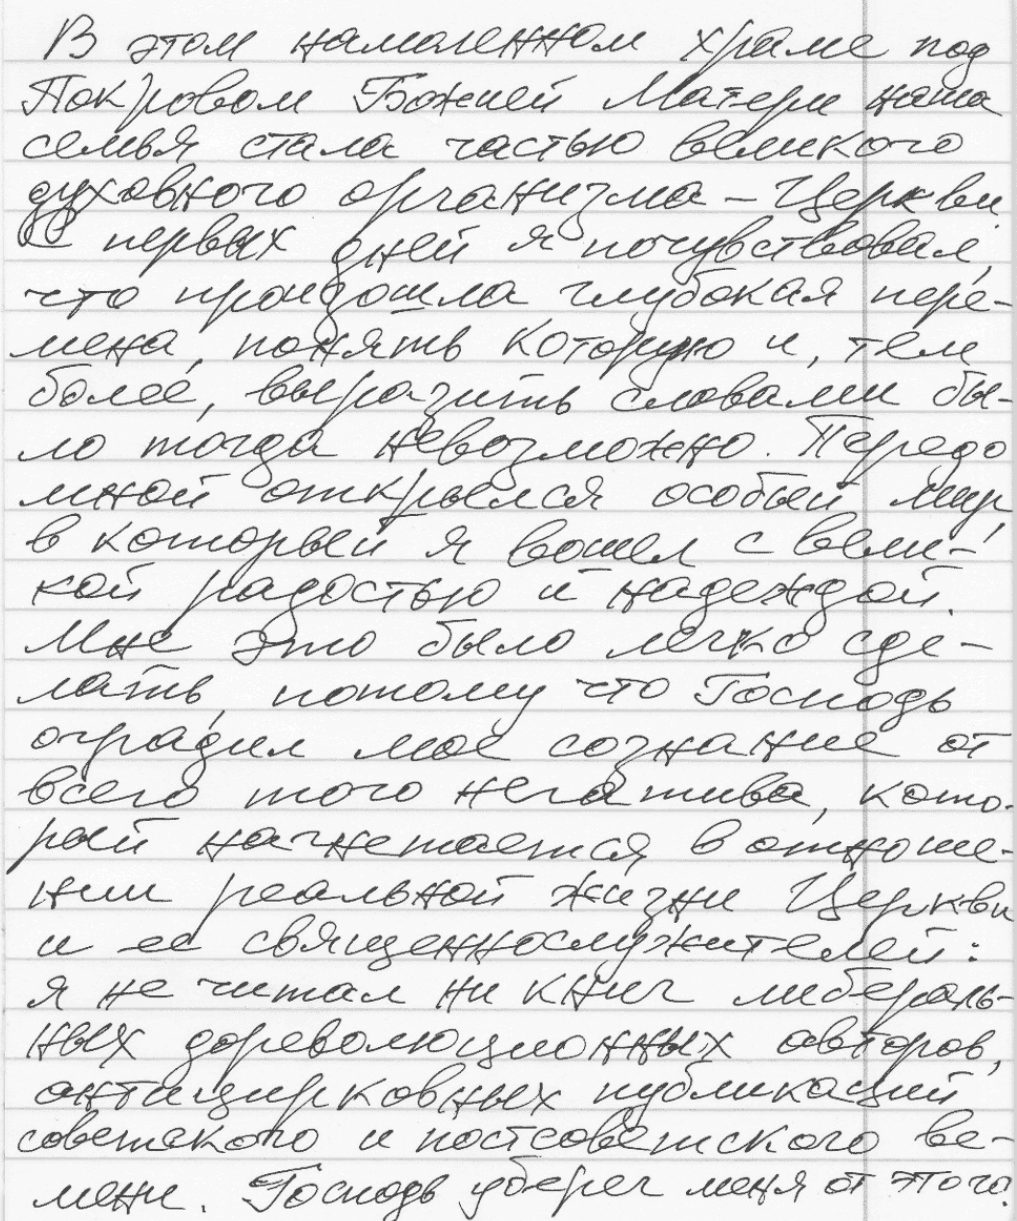 В этом намоленном храме под
Покровом Божией Матери наша
семья стала частью великого
духовного организма – Церкви.
С первых дней я почувствовал,
что произошла глубокая пере-
мена, понять которую и, тем
более, выразить словами бы-
ло тогда невозможно. Передо
мной открылся особый мир,
в который я вошел с вели-
кой радостью и надеждой.
Мне это было легко сде-
лать, потому что Господь
оградил мое сознание от
всего того негатива, кото-
рый нагнетается в отноше-
нии реальной жизни Церкви
и ее священнослужителей:
я не читал ни книг либераль-
ных дореволюционных авторов,
антицирковных публикаций
советского и постсоветского ве-
мени. Господь уберег меня от этого.